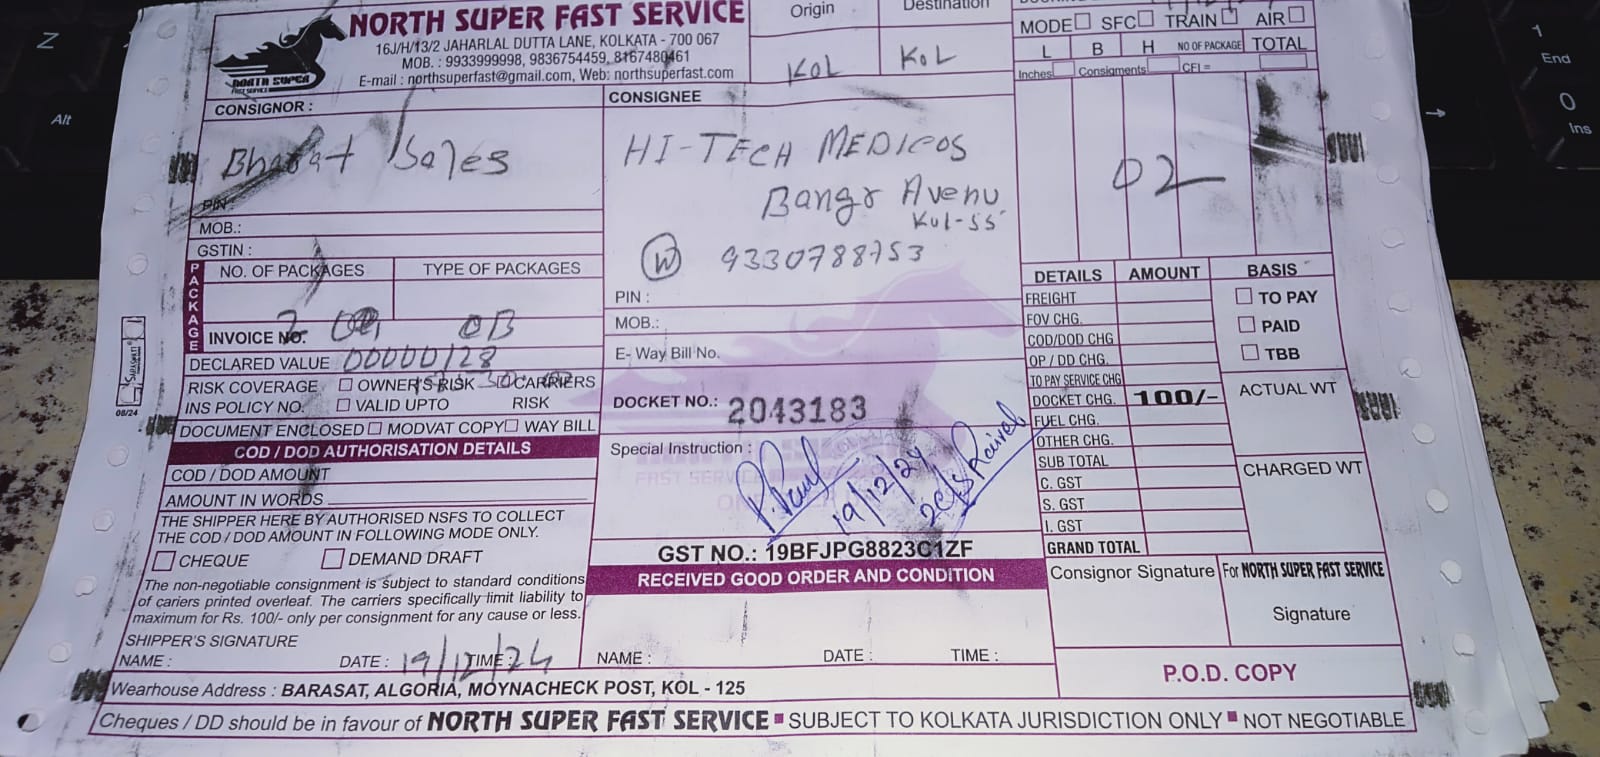 NORTH SUPER FAST SERVICE
16J/H/13/2 JAHARLAL DUTTA LANE, KOLKATA - 700 067
MOB. : 9933999998, 9836754459, 8167480461
E-mail : northsuperfast@gmail.com, Web: northsuperfast.com
NORTH SUPER
FAST SERVICE
Origin
Destination
KOL
KOL
MODE SFC TRAIN AIR
L B H NO OF PACKAGE TOTAL
Inches Consigments CFI =
02
CONSIGNOR :
Bharat Sales
PIN :
MOB.:
GSTIN :
CONSIGNEE
HI-TECH MEDICOS
Bangr Avenu
Kol-55
W 9330788753
PIN :
MOB.:
E- Way Bill No.
PACKAGE
NO. OF PACKAGES TYPE OF PACKAGES
INVOICE No. CB
DECLARED VALUE 00000128
RISK COVERAGE OWNER'S RISK CARRIERS
INS POLICY NO. VALID UPTO RISK
DOCUMENT ENCLOSED MODVAT COPY WAY BILL
COD / DOD AUTHORISATION DETAILS
COD / DOD AMOUNT
AMOUNT IN WORDS
THE SHIPPER HERE BY AUTHORISED NSFS TO COLLECT
THE COD / DOD AMOUNT IN FOLLOWING MODE ONLY.
CHEQUE DEMAND DRAFT
The non-negotiable consignment is subject to standard conditions
of cariers printed overleaf. The carriers specifically limit liability to
maximum for Rs. 100/- only per consignment for any cause or less.
SHIPPER'S SIGNATURE
NAME : DATE : 19/12/24 TIME :
DOCKET NO.: 2043183
Special Instruction :
19/12/24
GST NO.: 19BFJPG8823C1ZF
RECEIVED GOOD ORDER AND CONDITION
NAME : DATE : TIME :
DETAILS AMOUNT BASIS
FREIGHT
FOV CHG.
COD/DOD CHG
OP / DD CHG.
TO PAY SERVICE CHG
DOCKET CHG. 100/-
FUEL CHG.
OTHER CHG.
SUB TOTAL
C. GST
S. GST
I. GST
GRAND TOTAL
TO PAY
PAID
TBB
ACTUAL WT
CHARGED WT
Consignor Signature
For NORTH SUPER FAST SERVICE
Signature
P.O.D. COPY
Wearhouse Address : BARASAT, ALGORIA, MOYNACHECK POST, KOL - 125
Cheques / DD should be in favour of NORTH SUPER FAST SERVICE SUBJECT TO KOLKATA JURISDICTION ONLY NOT NEGOTIABLE
SARASWATI
08/24
Z
Alt
1
End
0
Ins